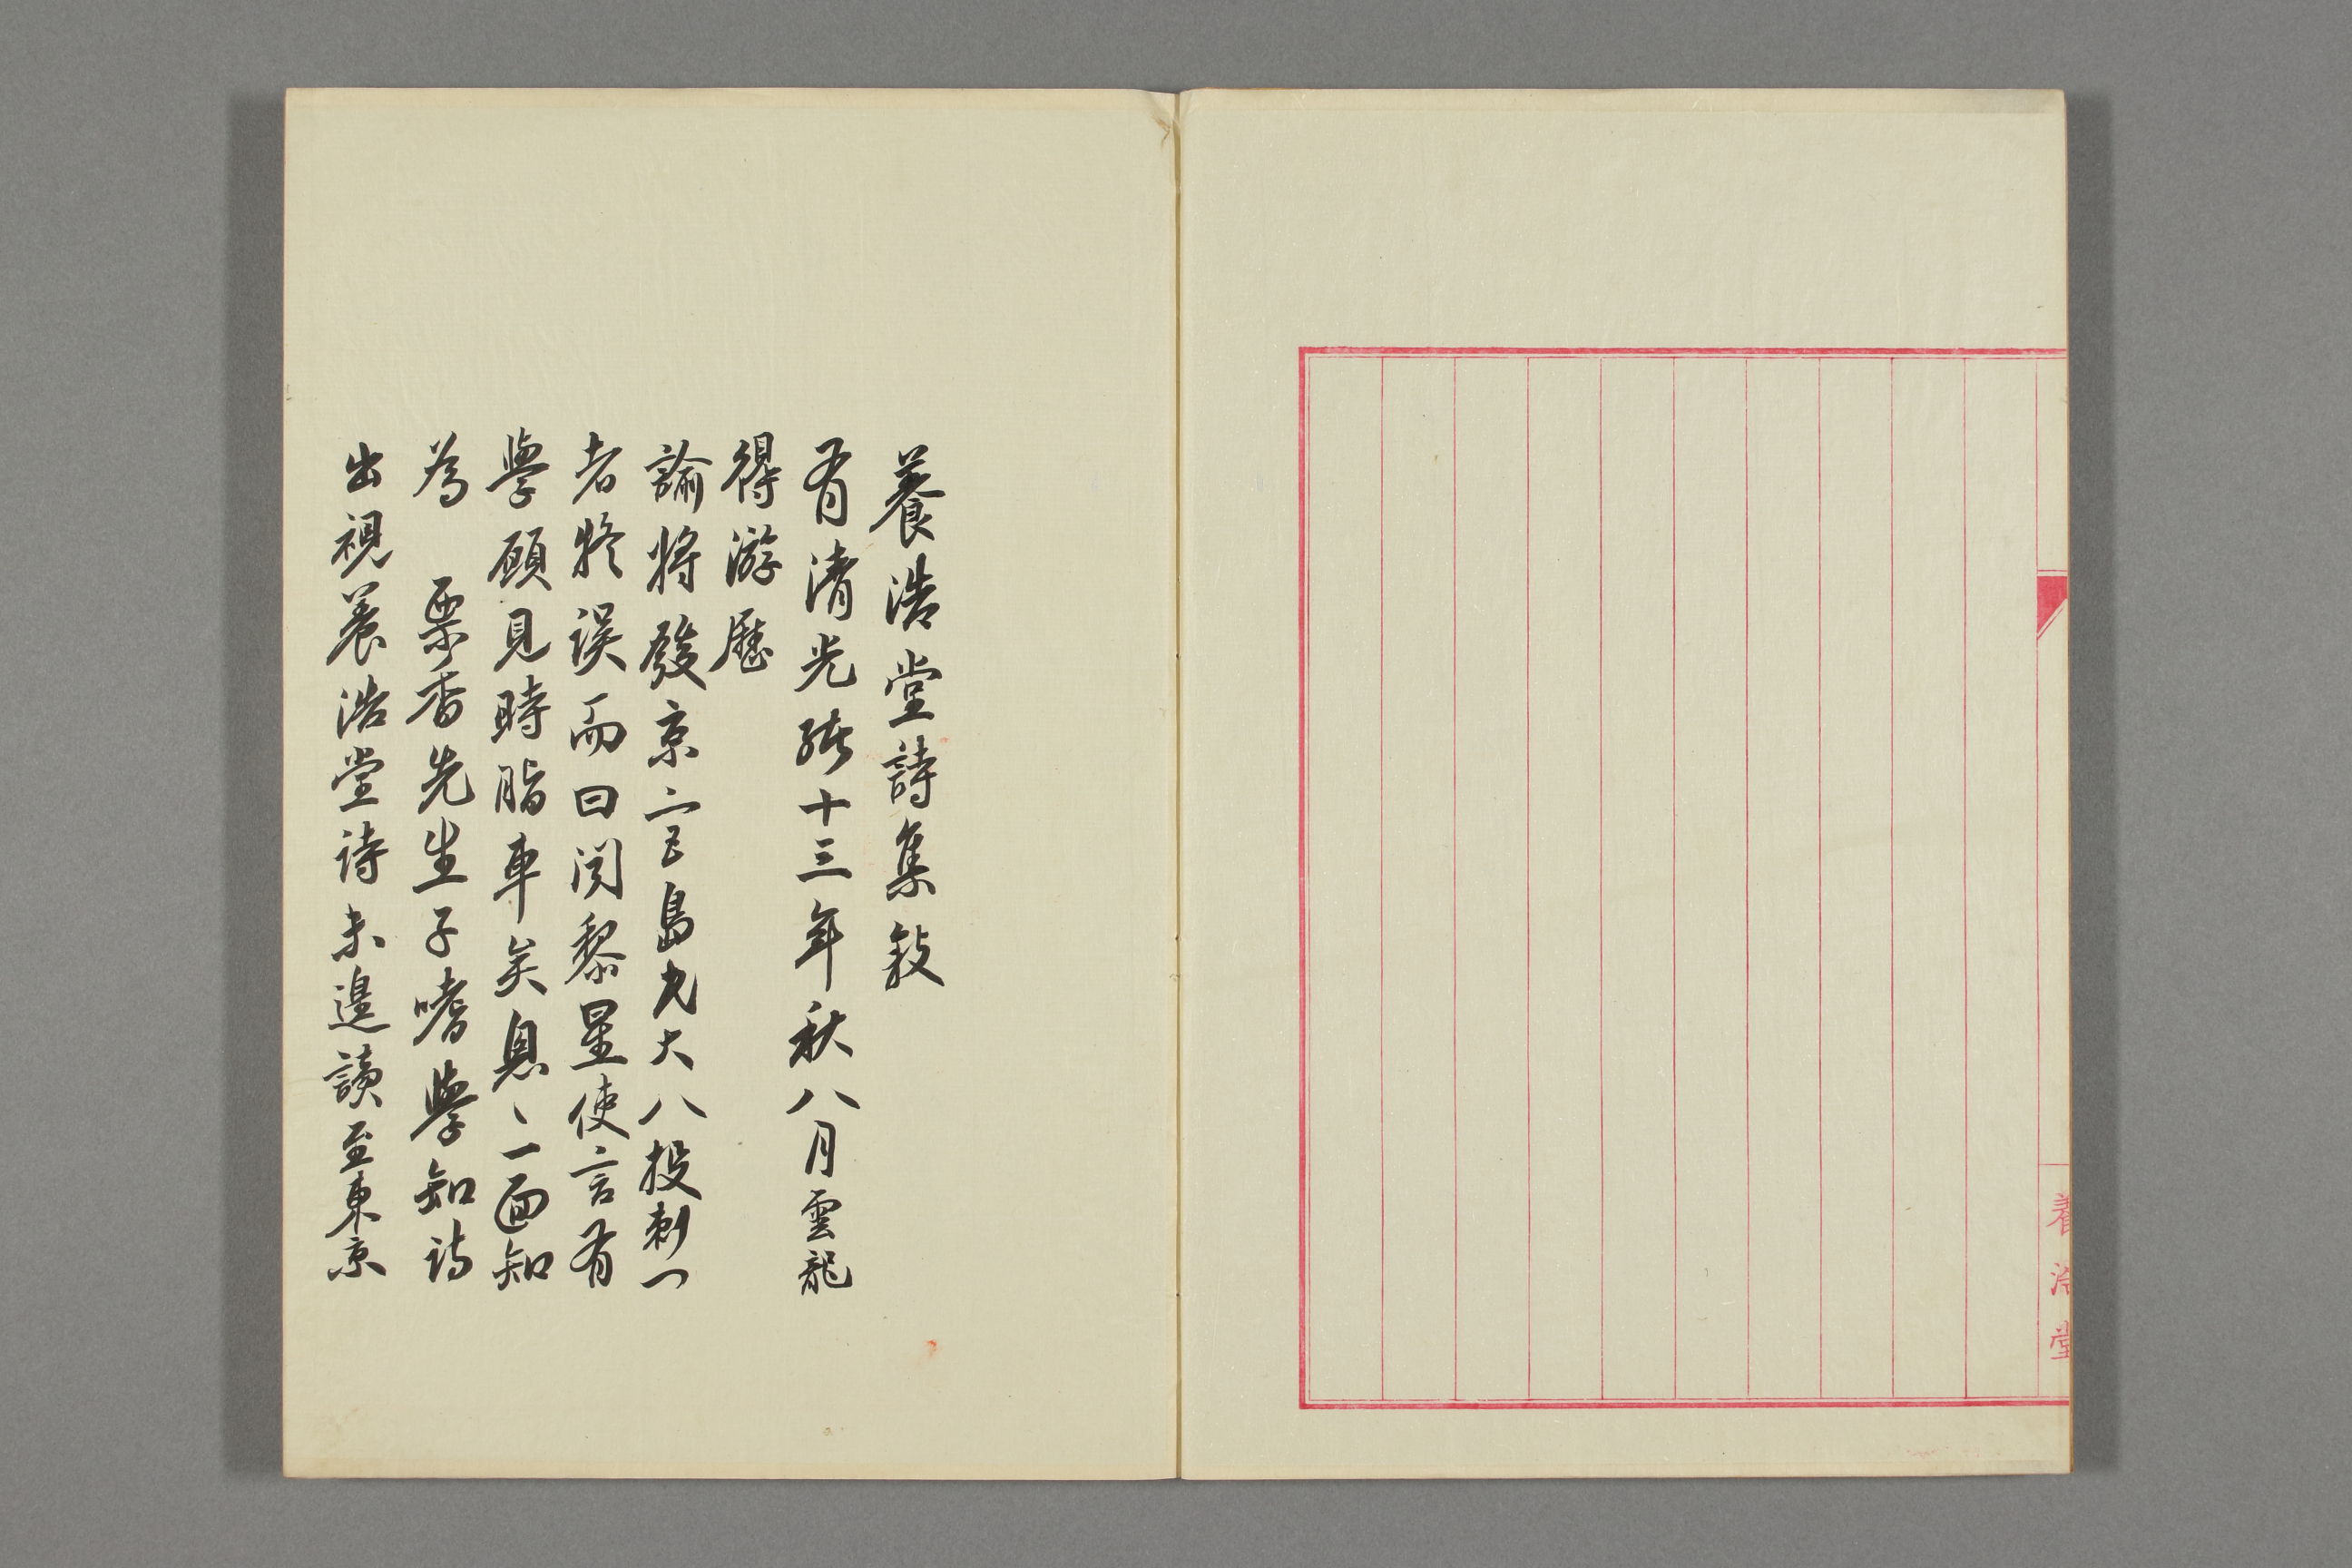 養浩堂
養浩堂詩集敍
有清光緒十三年秋八月雲龍
得游歷
諭將發京宮島大八投刺一
者疑誤而曰聞黎星使言有
學顧見時脂車矣悤〻一面知
為 栗香先生子嗜學知詩
出視養浩堂詩未遑讀至東京